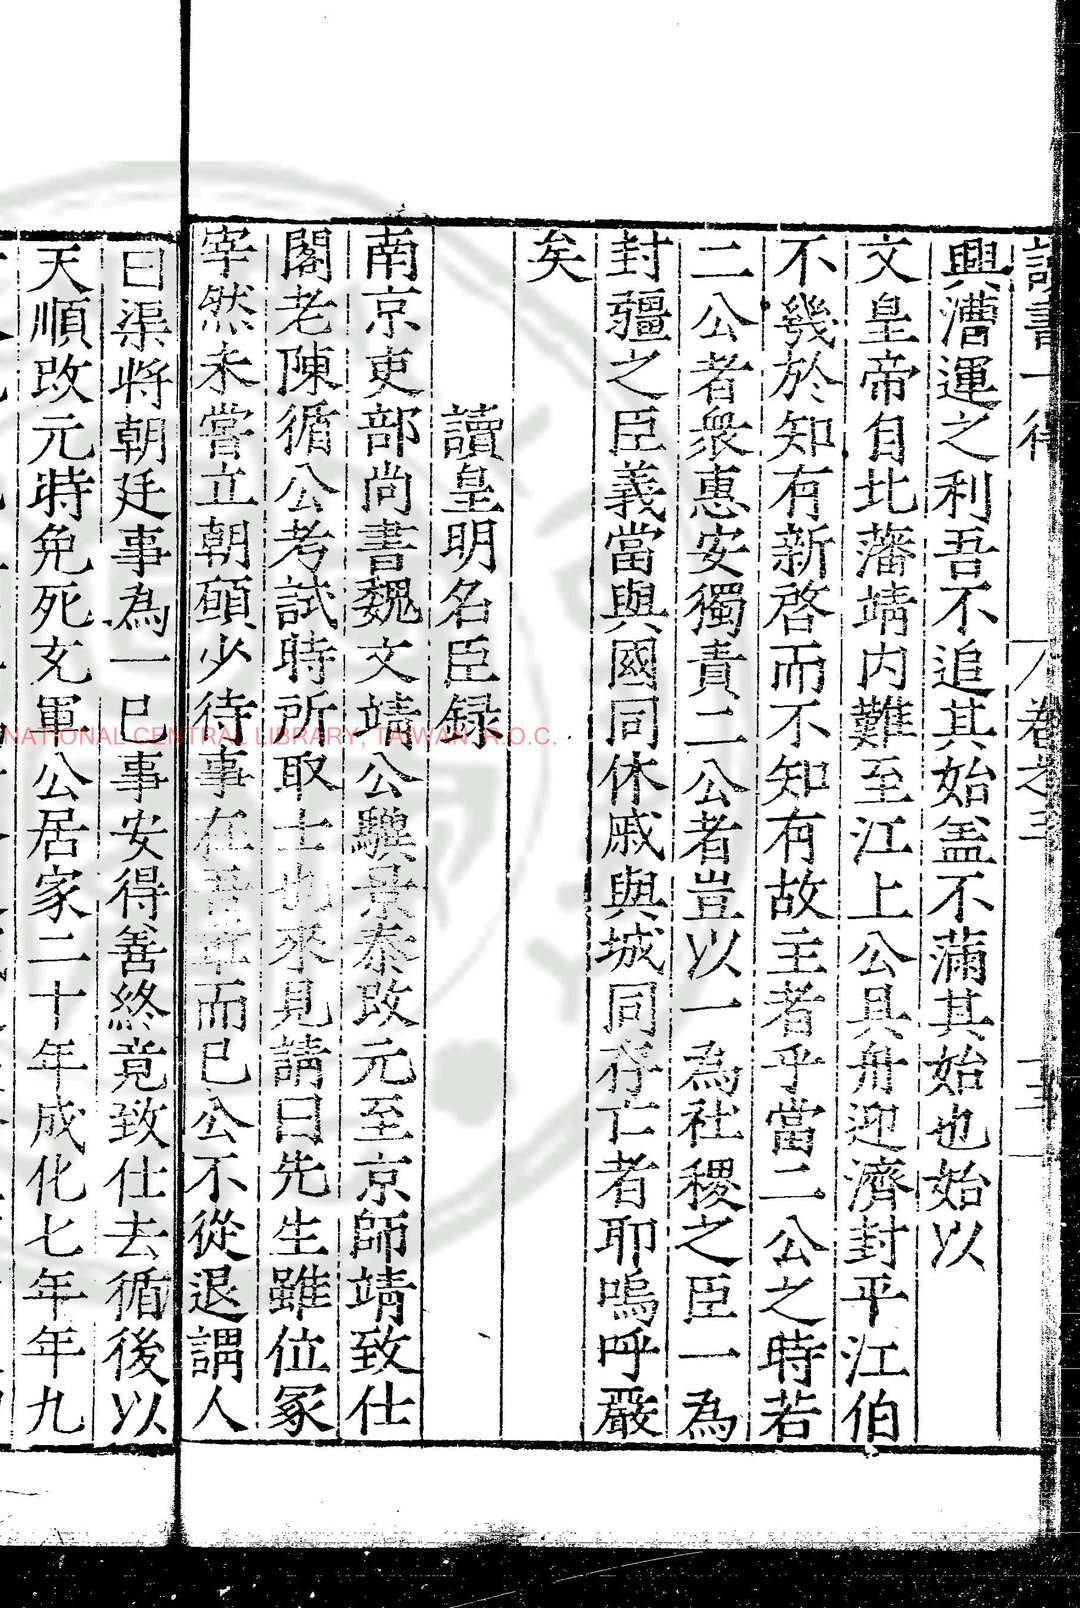 讀書一得 卷之三 十二
興漕運之利吾不追其始盖不滿其始也始以
文皇帝自北藩靖内難至江上公具舟迎濟封平江伯
不幾於知有新啓而不知有故主者乎當二公之時若
二公者衆惠安獨責二公者豈以一為社稷之臣一為
封疆之臣義當與國同休戚與城同存亡者耶嗚呼嚴
矣
讀皇明名臣録
南京吏部尚書魏文靖公驥景泰改元至京師靖致仕
閣老陳循公考試時所取士也來見請曰先生雖位冢
宰然未嘗立朝頋少待事在吾輩而已公不從退謂人
曰渠將朝廷事為一已事安得善終竟致仕去循後以
天順改元時免死充軍公居家二十年成化七年年九
NATIONAL CENTRAL LIBRARY, TAIWAN, R.O.C.